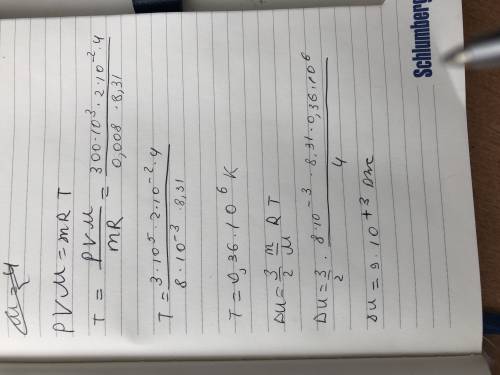 M=4
PVM=mRT
T = PVM/mR = 300·10³·2·10⁻²·4/0,008·8,31
T = 3·10⁵·2·10⁻²·4/8·10⁻³·8,31
T=0,36·10⁶ K
ΔU=3/2 m/M RT
ΔU=3/2 · 8·10⁻³·8,31·0,36·10⁶/4
ΔU=9·10⁺³ Дж
Schlumberg